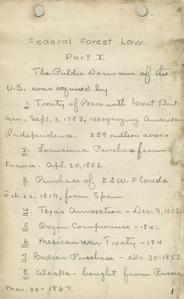 Federal Forest Law.
Part I
The Public Domain of the
U.S. was acquired by
1. Treaty of Peace with Great Brit-
ain, Sept. 3, 1783, recognizing American
Independence. 259 million acres
2. Louisiana Purchase from
France. Apl. 30, 1803.
3. Purchase of E. & W. Florida
Feb. 22, 1819, from Spain
4. Texas Annexation - Dec. 9, 
5. Oregon Compromise - 184
6. Mexican War Treaty - 184
7. Gadsden Purchase - Dec. 30 - 1853.
8. Alaska - bought from Russia
Mar. 30 - 1867.